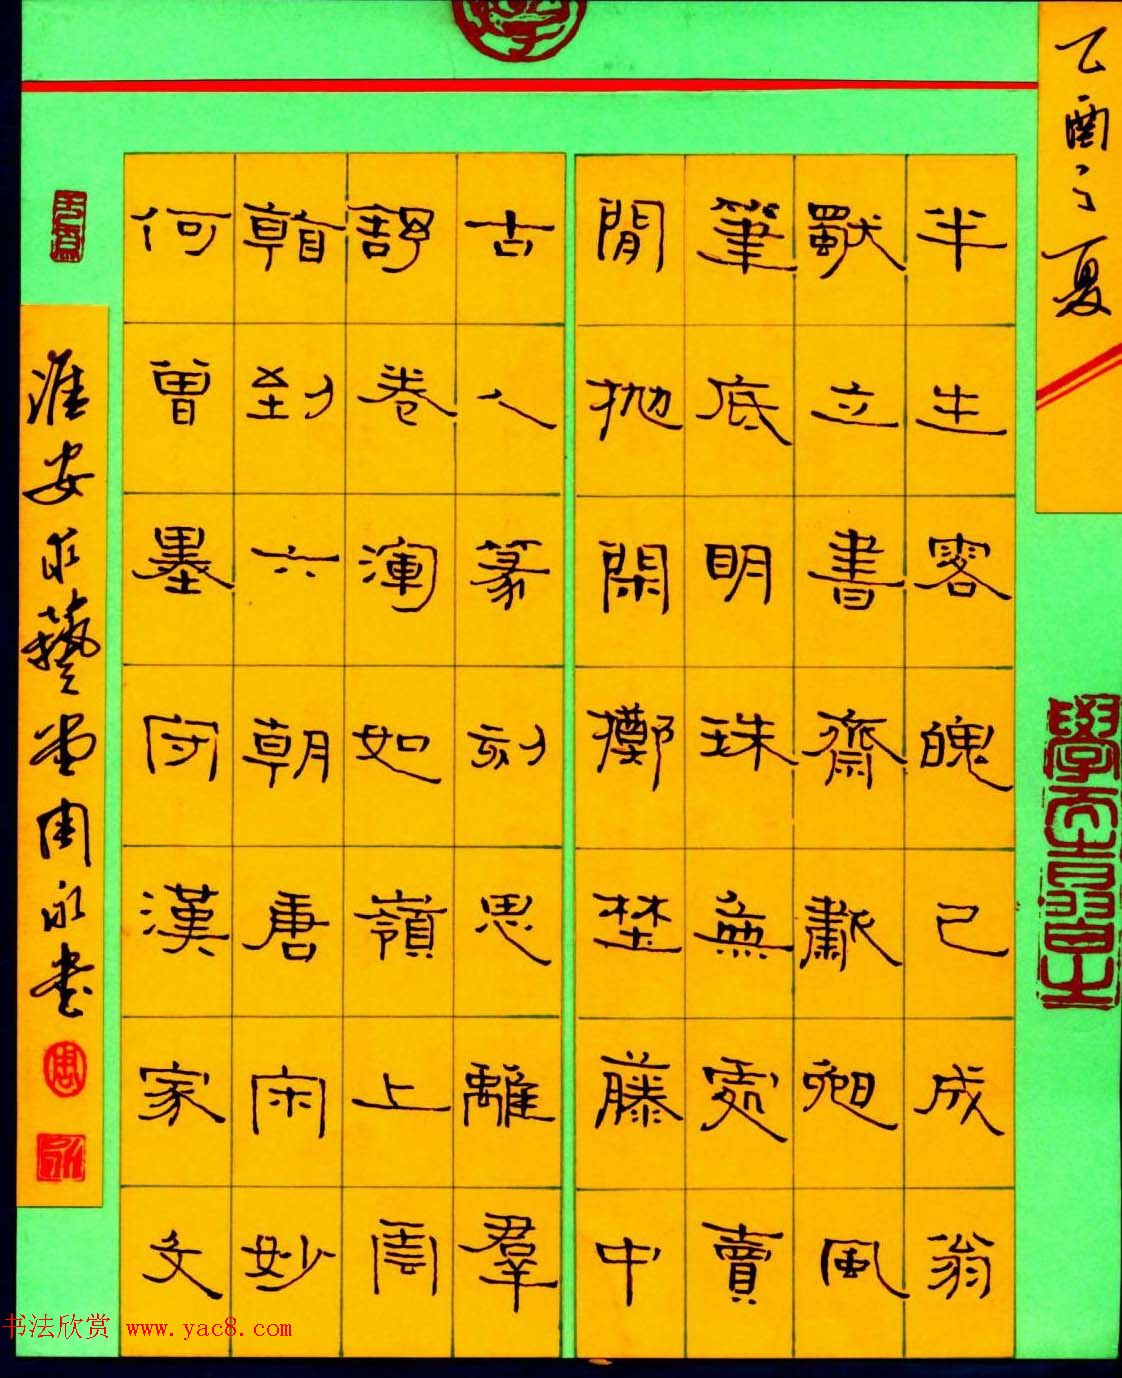 乙酉之夏
半生落魄已成翁
獨立書齋嘯晚風
筆底明珠無處賣
閒拋閑擲埜藤中
古人篆刻思離羣
舒卷渾如嶺上雲
看到六朝唐宋妙
何曾墨守漢家文
淮安求藝堂周永书
周
书法欣赏 www.yac8.com